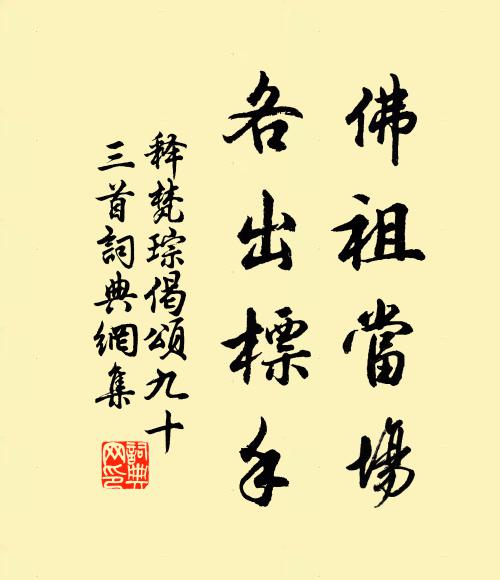 佛祖當場
各出標手
释梵琮偈頌九十
三首詞典網集
詞典
网印